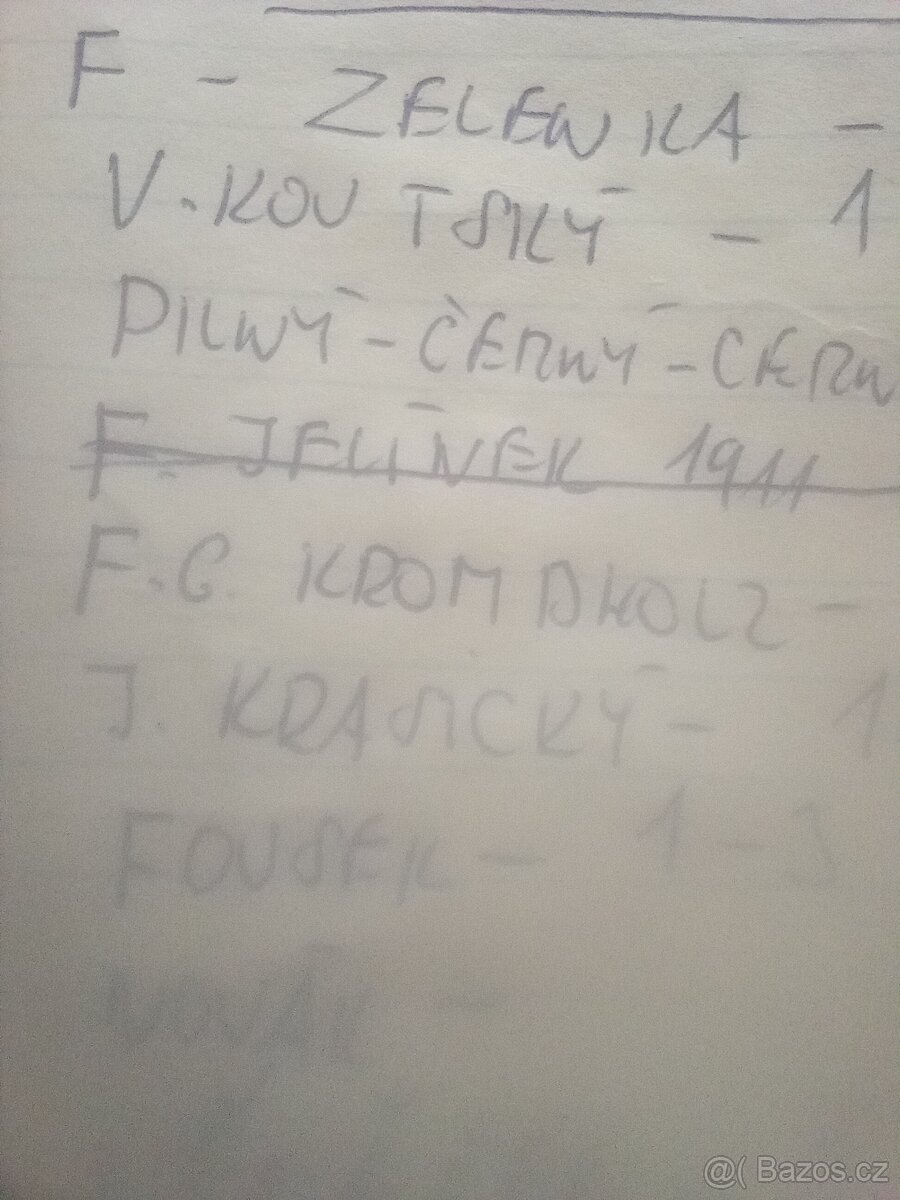 F - ZELENKA -
V. KOUTSKÝ - 1
PILNÝ - ČERNÝ - ČERN
F. JELÍNEK 1911
F. G. KROMDHOLZ -
J. KRASICKÝ - 1
FOUSEK - 1 -
NOVÁK -
@( Bazos.cz